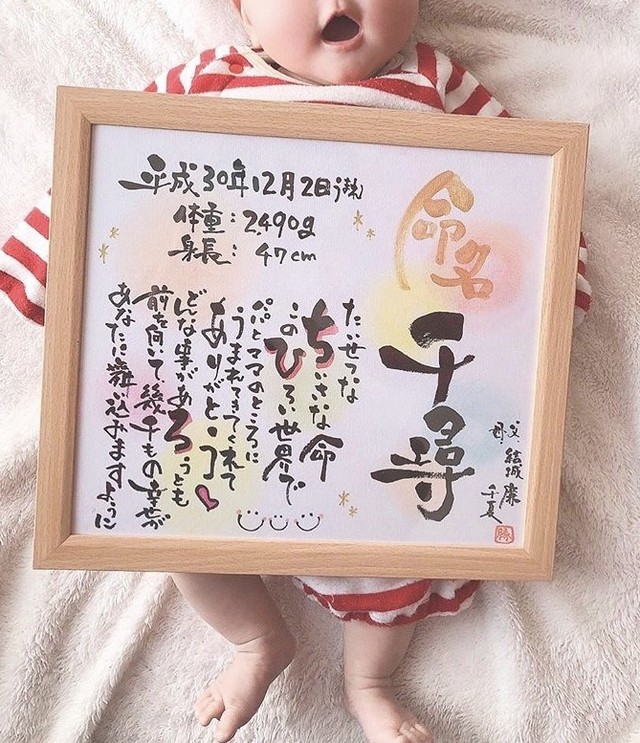 命名
千尋
父 結城 康
母 千夏
平成30年12月2日う(まれ)
体重:2490g
身長:47cm
たいせつな
ちいさな命
このひろい世界で
パパとママのところに
うまれてきてくれて
ありがとう
どんな事があろうとも
前を向いて、幾千もの幸せが
あなたに舞い込みますように